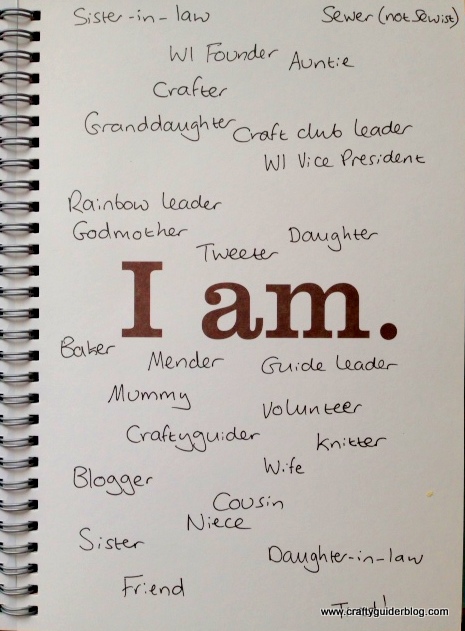 Sister-in-law Sewer (not Sewist)
WI Founder Auntie
Crafter
Granddaughter Craft club leader
WI Vice President
Rainbow leader
Godmother Daughter
Tweeter
I am.
Baker Mender Guide leader
Mummy Volunteer
Craftyguider Knitter
Blogger Wife
Cousin
Niece
Sister Daughter-in-law
Friend
www.craftyguiderblog.com